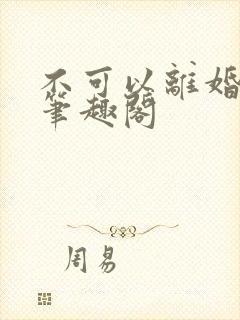 不可以離婚
筆趣閣
周易